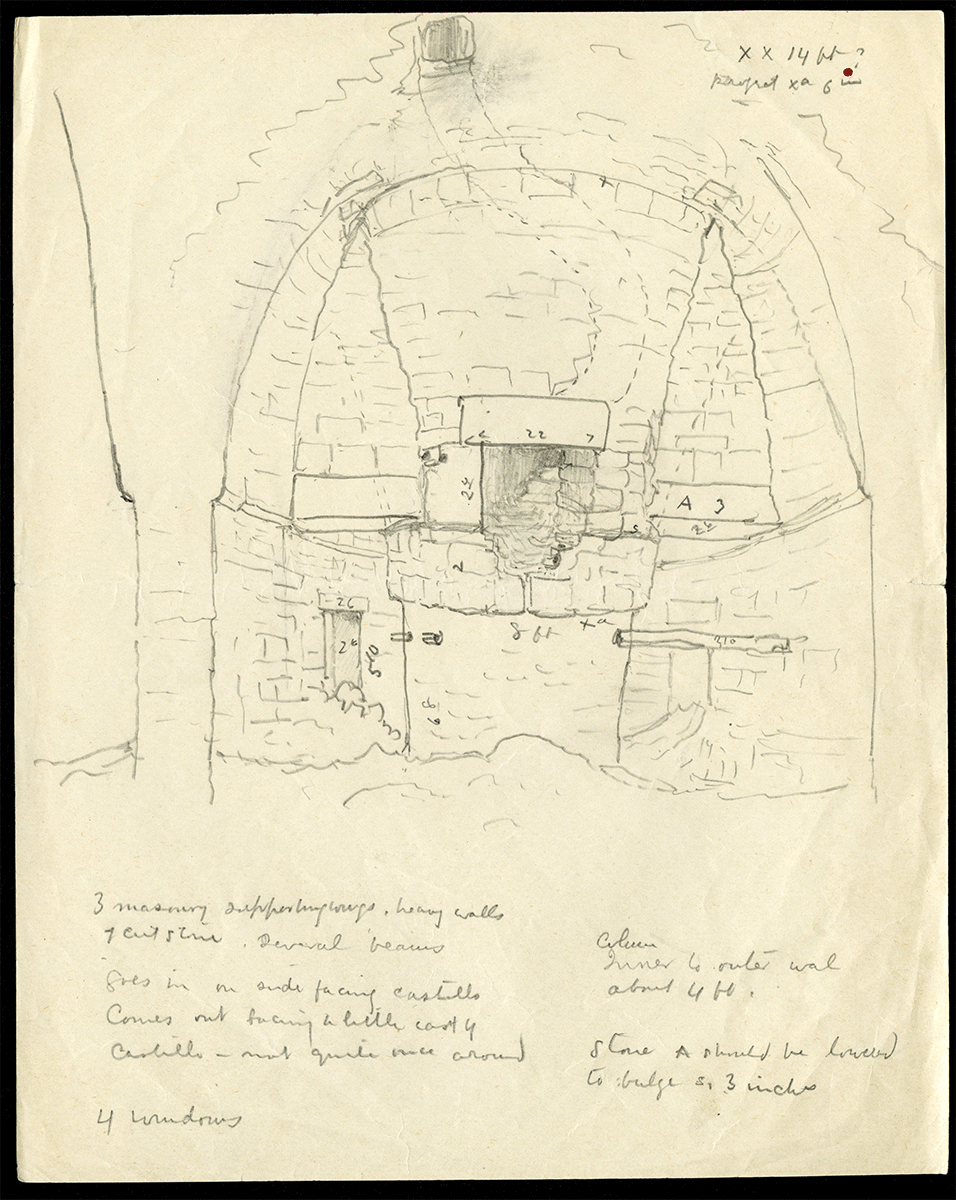 X X 14 ft ?
xa 6 in
22
24
A 3
24
S
2
26
2
8 ft xa
310
3 masonry supporting wings. heavy walls
of cut stone. Several beams
Goes in on side facing castillo
Comes out facing a little east of
Castillo – not quite once around
4 windows
Column
Inner to outer wal
about 4 ft.
Stone A should be lowered
to bulge s. 3 inches